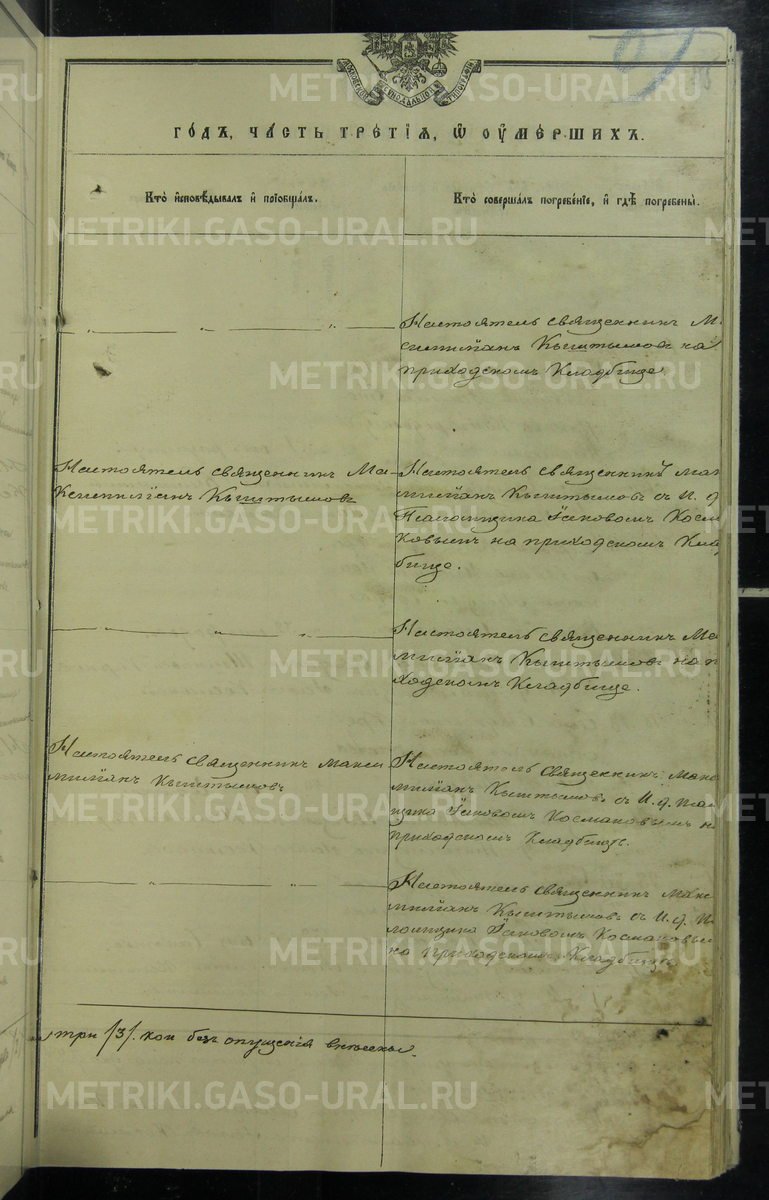 ГОДЪ, ЧАСТЬ ТРЕТІѦ, Ѡ ОУМЕРШИХЪ.
Кто исповѣдывалъ и пріобщалъ.
Кто совершалъ погребеніе, и гдѣ погребены.
Настоятель священникъ М
симиліанъ Кыштымовъ на
приходскомъ Кладбище.
Настоятель священникъ Ма-
ксимиліанъ Кыштымовъ
Настоятель священникъ Мак
миліанъ Кыштымовъ съ И. д
Псаломщика Іаковомъ Косма
ковымъ на приходскомъ Клад
бище.
Настоятель священникъ Ма
миліанъ Кыштымовъ на п
ходскомъ Кладбище.
Настоятель священникъ Макси
миліанъ Кыштымовъ
Настоятель священникъ Макс
миліанъ Кыштымовъ съ И. д. Пса
щика Іаковомъ Космаковымъ н
приходскомъ Кладбищѣ.
Настоятель священникъ Макс
миліанъ Кыштымовъ съ И. д. П
ломщика Іаковомъ Космаковы
на приходскомъ Кладбищѣ
три /3/. кои безъ опущенія внесены.
METRIKI.GASO-URAL.RU